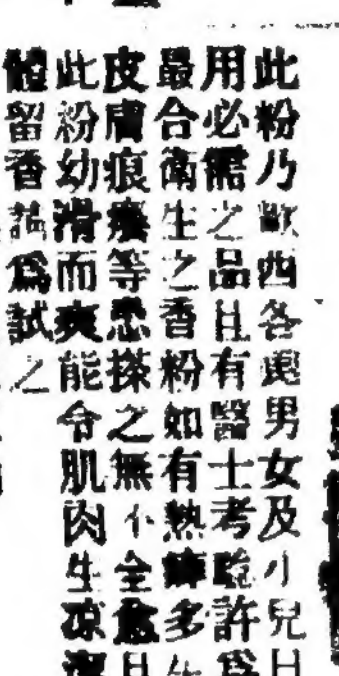 此粉乃歐西各處男女及小兒日
用必需之品且有醫士考驗許爲
最合衛生之香粉如有熱痱多生
皮膚痕癢等患搽之無不全愈且
此粉幼滑而爽能令肌肉生凉潔
體留香請爲試之